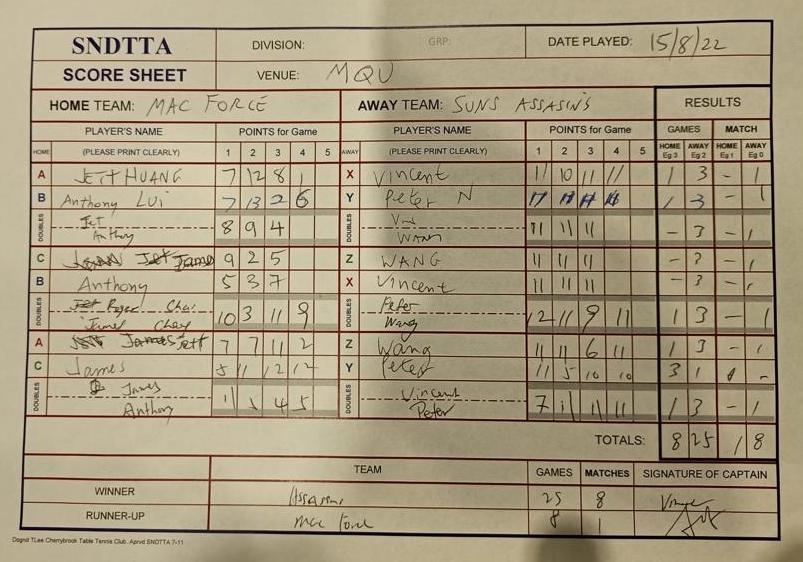 SNDTTA DIVISION: GRP: DATE PLAYED: 15/8/22
SCORE SHEET VENUE: MQU
HOME TEAM: MAC FORCE AWAY TEAM: SUNS ASSASINS RESULTS
PLAYER'S NAME POINTS for Game PLAYER'S NAME POINTS for Game GAMES MATCH
HOME (PLEASE PRINT CLEARLY) 1 2 3 4 5 AWAY (PLEASE PRINT CLEARLY) 1 2 3 4 5 HOME Eg 3 AWAY Eg 2 HOME Eg 1 AWAY Eg 0
A JETT HUANG 7 12 8 1 X Vincent 11 10 11 11 1 3 - 1
B Anthony LUI 7 13 2 6 Y Peter N 11 11 11 1 3 - 1
DOUBLES Jet Anthony 8 9 4 DOUBLES Vin WANG 11 11 11 - 3 - 1
C James 9 2 5 Z WANG 11 11 11 - 3 - 1
B Anthony 5 3 7 X Vincent 11 11 11 - 3 - 1
DOUBLES James 10 3 11 9 DOUBLES Peter Wang 12 11 9 11 1 3 - 1
A Jett 7 7 11 2 Z Wang 11 11 6 11 1 3 - 1
C James 5 11 12 12 Y Peter 11 5 10 10 3 1 1 -
DOUBLES James Anthony 11 5 4 5 DOUBLES Vincent Peter 7 11 11 11 1 3 - 1
TOTALS: 8 25 1 8
TEAM GAMES MATCHES SIGNATURE OF CAPTAIN
WINNER Assassins 25 8
RUNNER-UP Mac Force 8 1
Dsgnd TLee Cherrybrook Table Tennis Club. Aprvd SNDTTA 7-11